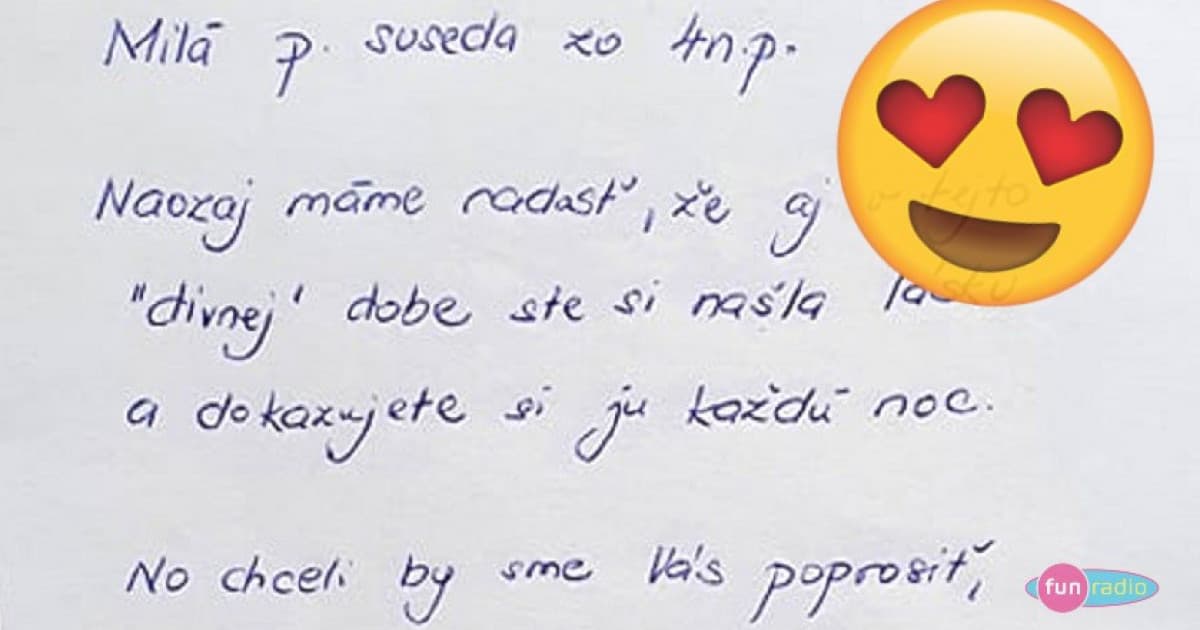 Milá p. suseda zo 4n.p.
Naozaj máme radasť, že aj v tejto
"divnej' dobe ste si našla lásku
a dokazujete si ju každú noc.
No chceli by sme Vás poprosiť,
fun radio